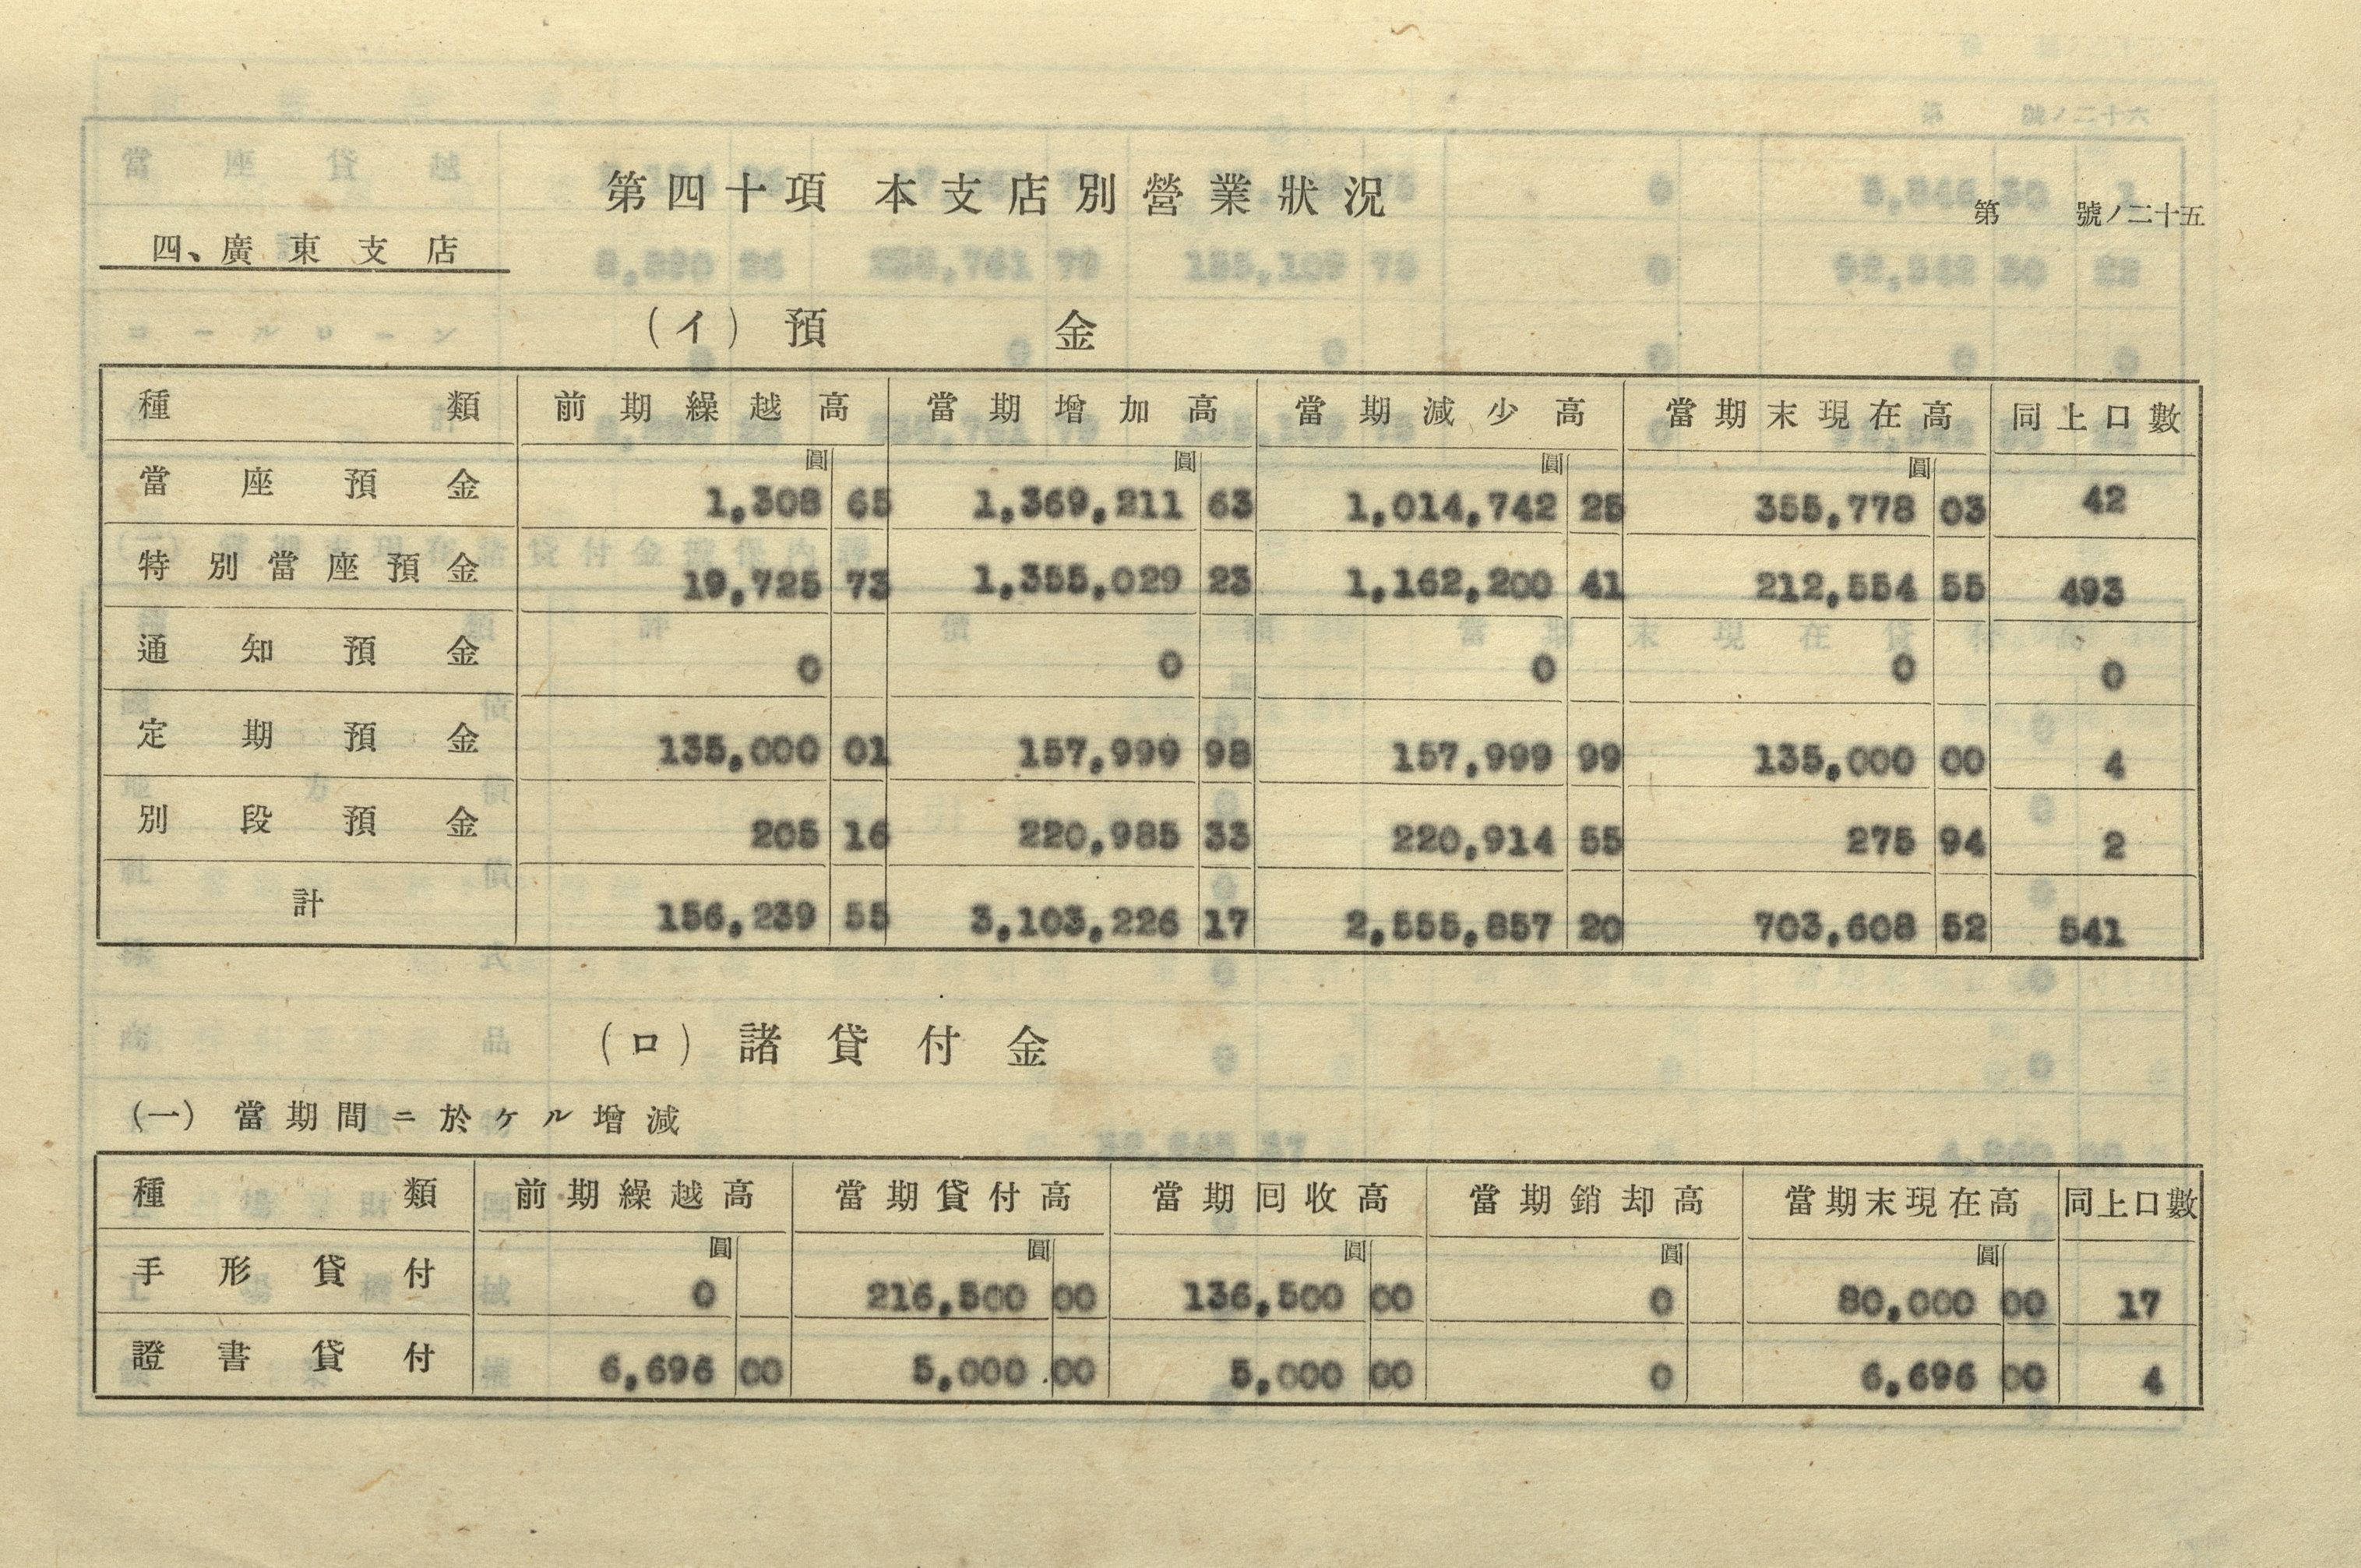 第四十項 本支店別營業狀況
第 號ノ二十五
四、廣東支店
(イ) 預金
種類 前期繰越高 當期增加高 當期減少高 當期末現在高 同上口數
圓 圓 圓 圓
當座預金 1,308 65 1,369,211 63 1,014,742 25 355,778 03 42
特別當座預金 19,725 73 1,355,029 23 1,162,200 41 212,554 55 493
通知預金 0 0 0 0 0
定期預金 135,000 01 157,999 98 157,999 99 135,000 00 4
別段預金 205 16 220,985 33 220,914 55 275 94 2
計 156,239 55 3,103,226 17 2,555,857 20 703,608 52 541
(ロ) 諸貸付金
(一) 當期間ニ於ケル增減
種類 前期繰越高 當期貸付高 當期回收高 當期銷却高 當期末現在高 同上口數
圓 圓 圓 圓 圓
手形貸付 0 216,500 00 136,500 00 0 80,000 00 17
證書貸付 6,696 00 5,000 00 5,000 00 0 6,696 00 4